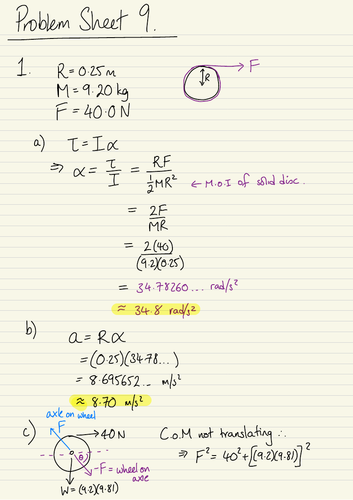 Problem Sheet 9.
1. R = 0.25m
M = 9.20 kg
F = 40.0N
F
R
a) τ = Iα
⇒ α = τ/I = RF/(½MR²) ← M.O.I of solid disc.
= 2F/MR
= 2(40)/(9.2)(0.25)
= 34.78260... rad/s²
≈ 34.8 rad/s²
b) a = Rα
= (0.25)(34.78...)
= 8.695652... m/s²
≈ 8.70 m/s²
axle on wheel
c) F
40N
θ
-F = wheel on axle
W = (9.2)(9.81)
C.o.M not translating ∴
⇒ F² = 40² + [(9.2)(9.81)]²